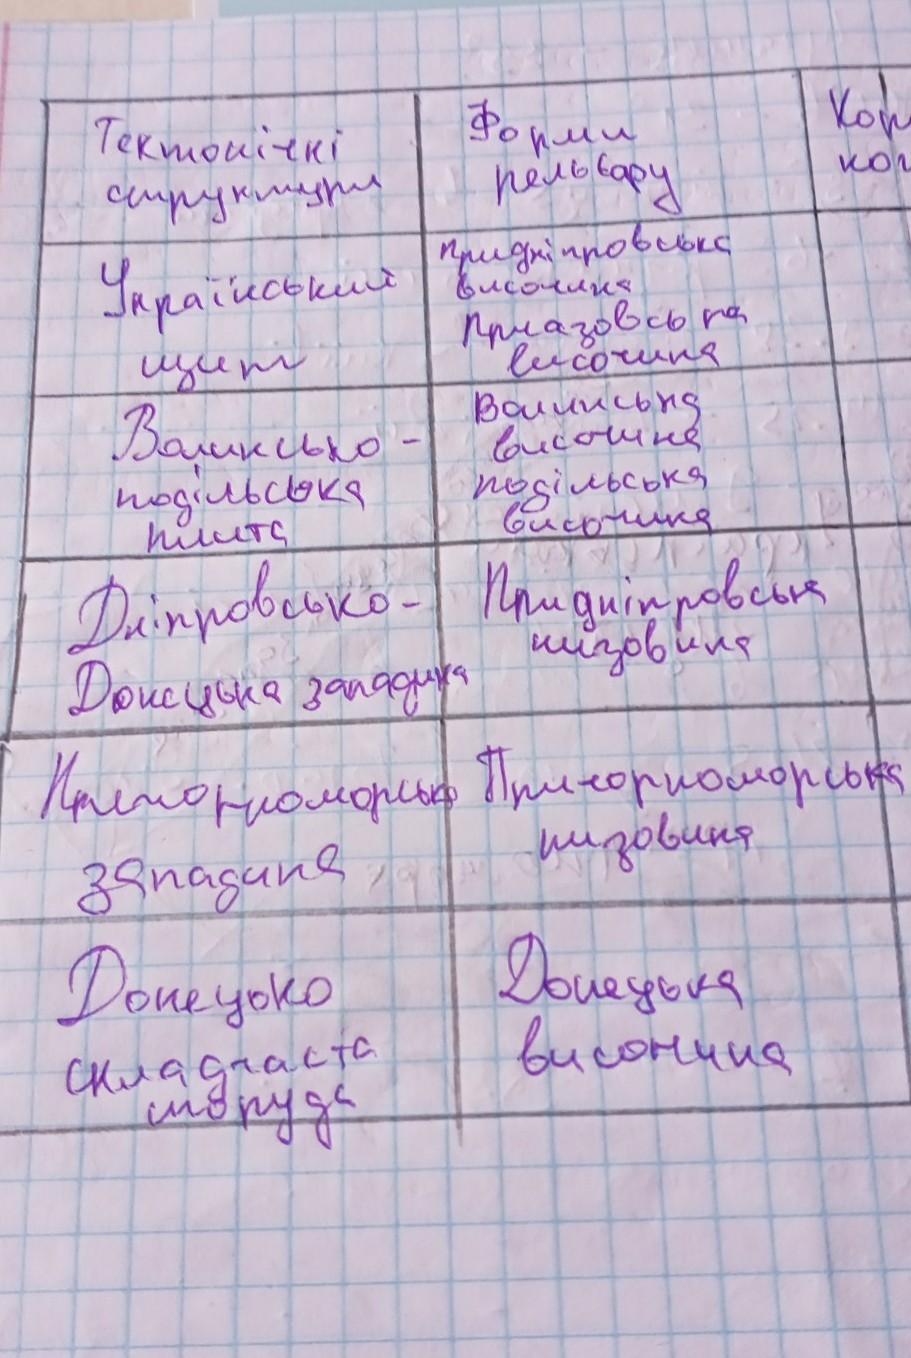 Тектонічні
структури
Форми
рельєфу
Кор
коп
Український
щит
Придніпровська
височина
Приазовська
височина
Волинсько-
подільська
плита
Волинська
височина
подільська
височина
Дніпровсько-
Донецька западина
Придніпровська
низовина
Причорноморська
западина
Причорноморська
низовина
Донецько
складчаста
споруда
Донецька
височина